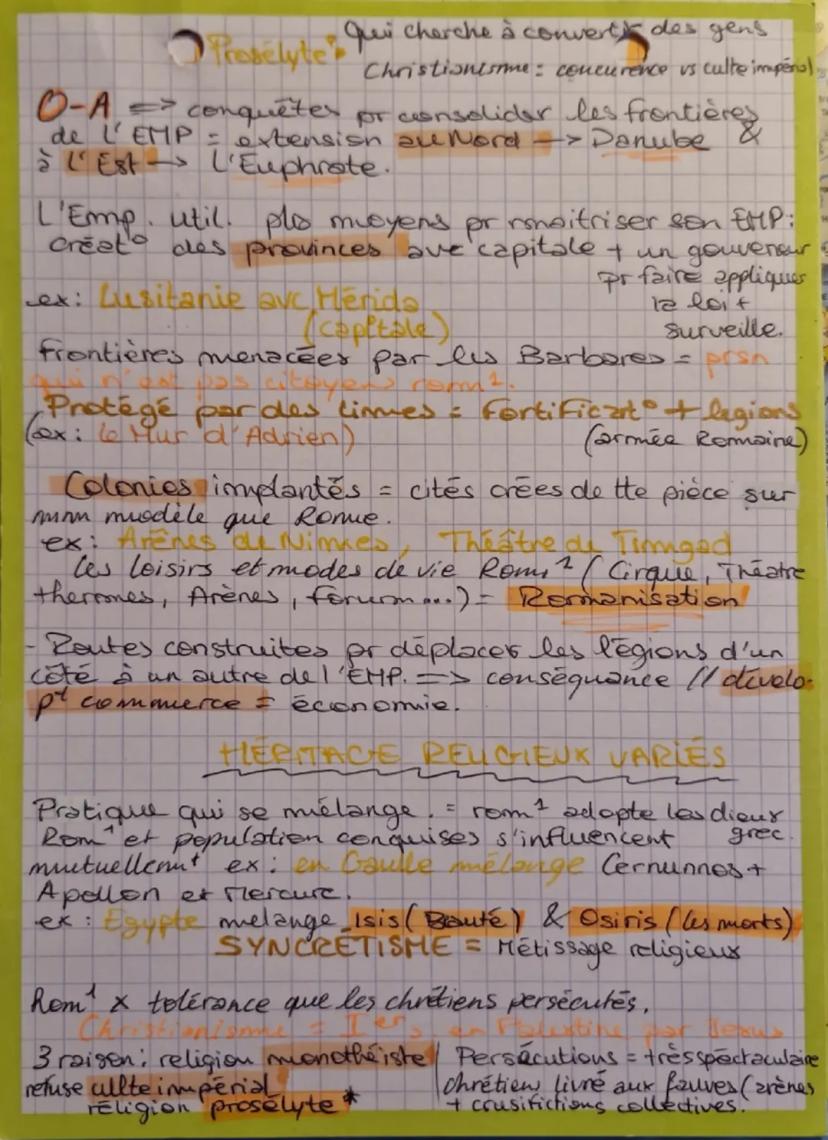 Prosélyte* qui cherche à convertir des gens
Christianisme = concurrence vs culte impérial
O-A => conquêtes pr consolider les frontières
de l'EMP = extension au Nord -> Danube &
à l'Est -> l'Euphrate.
L'Emp. util. pls moyens pr maitriser son EMP :
Créat° des provinces avc capitale + un gouveneur
pr faire appliquer
la loi +
surveille.
ex : Lusitanie avc Mérida
(capitale)
frontières menacées par les Barbares = prsn
qui n'est pas citoyens rom1.
Protégé par des limes = fortificat° + legions
(ex : le Mur d'Adrien) (armée Romaine)
Colonies implantés = cités crées de tte pièce sur
mm modèle que Rome.
ex : Arênes de Nimes, Théâtre de Timgad
les loisirs et modes de vie Rom, 2 (Cirque, Théatre
thermes, Arènes, forum...) = Romanisation
- Routes construites pr déplacer les légions d'un
côté à un autre de l'EMP. => conséquance // dévelo-
pt commerce = économie.
HÉRITAGE RELIGIEUX VARIÉS
Pratique qui se mélange. = rom1 adopte les dieux
grec.
Rom1 et population conquises s'influencent
mutuellemt ex : en Gaulle mélange Cernunnos +
Apollon et Mercure.
ex : Egypte melange Isis (Bauté) & Osiris (les morts)
SYNCRÉTISME = Métissage religieux
Rom1 x tolérance que les chrétiens persécutés.
Christianisme = Ier s. en Palestine par Jesus
3 raison : religion monothéiste
refuse cullte impérial
réligion prosélyte *
Persécutions = très spectaculaire
Chrétien livré aux fauves (arènes
+ crusifictions collectives.